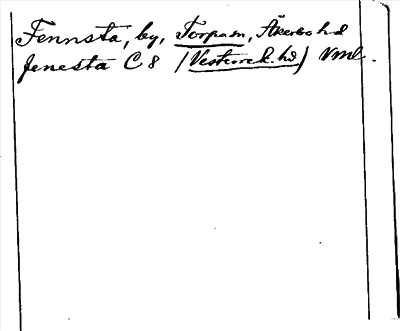 Fennsta, by, Torpa sn, Åkerbo hd
fenesta C 8 (Vestrorek. hd) Vml.